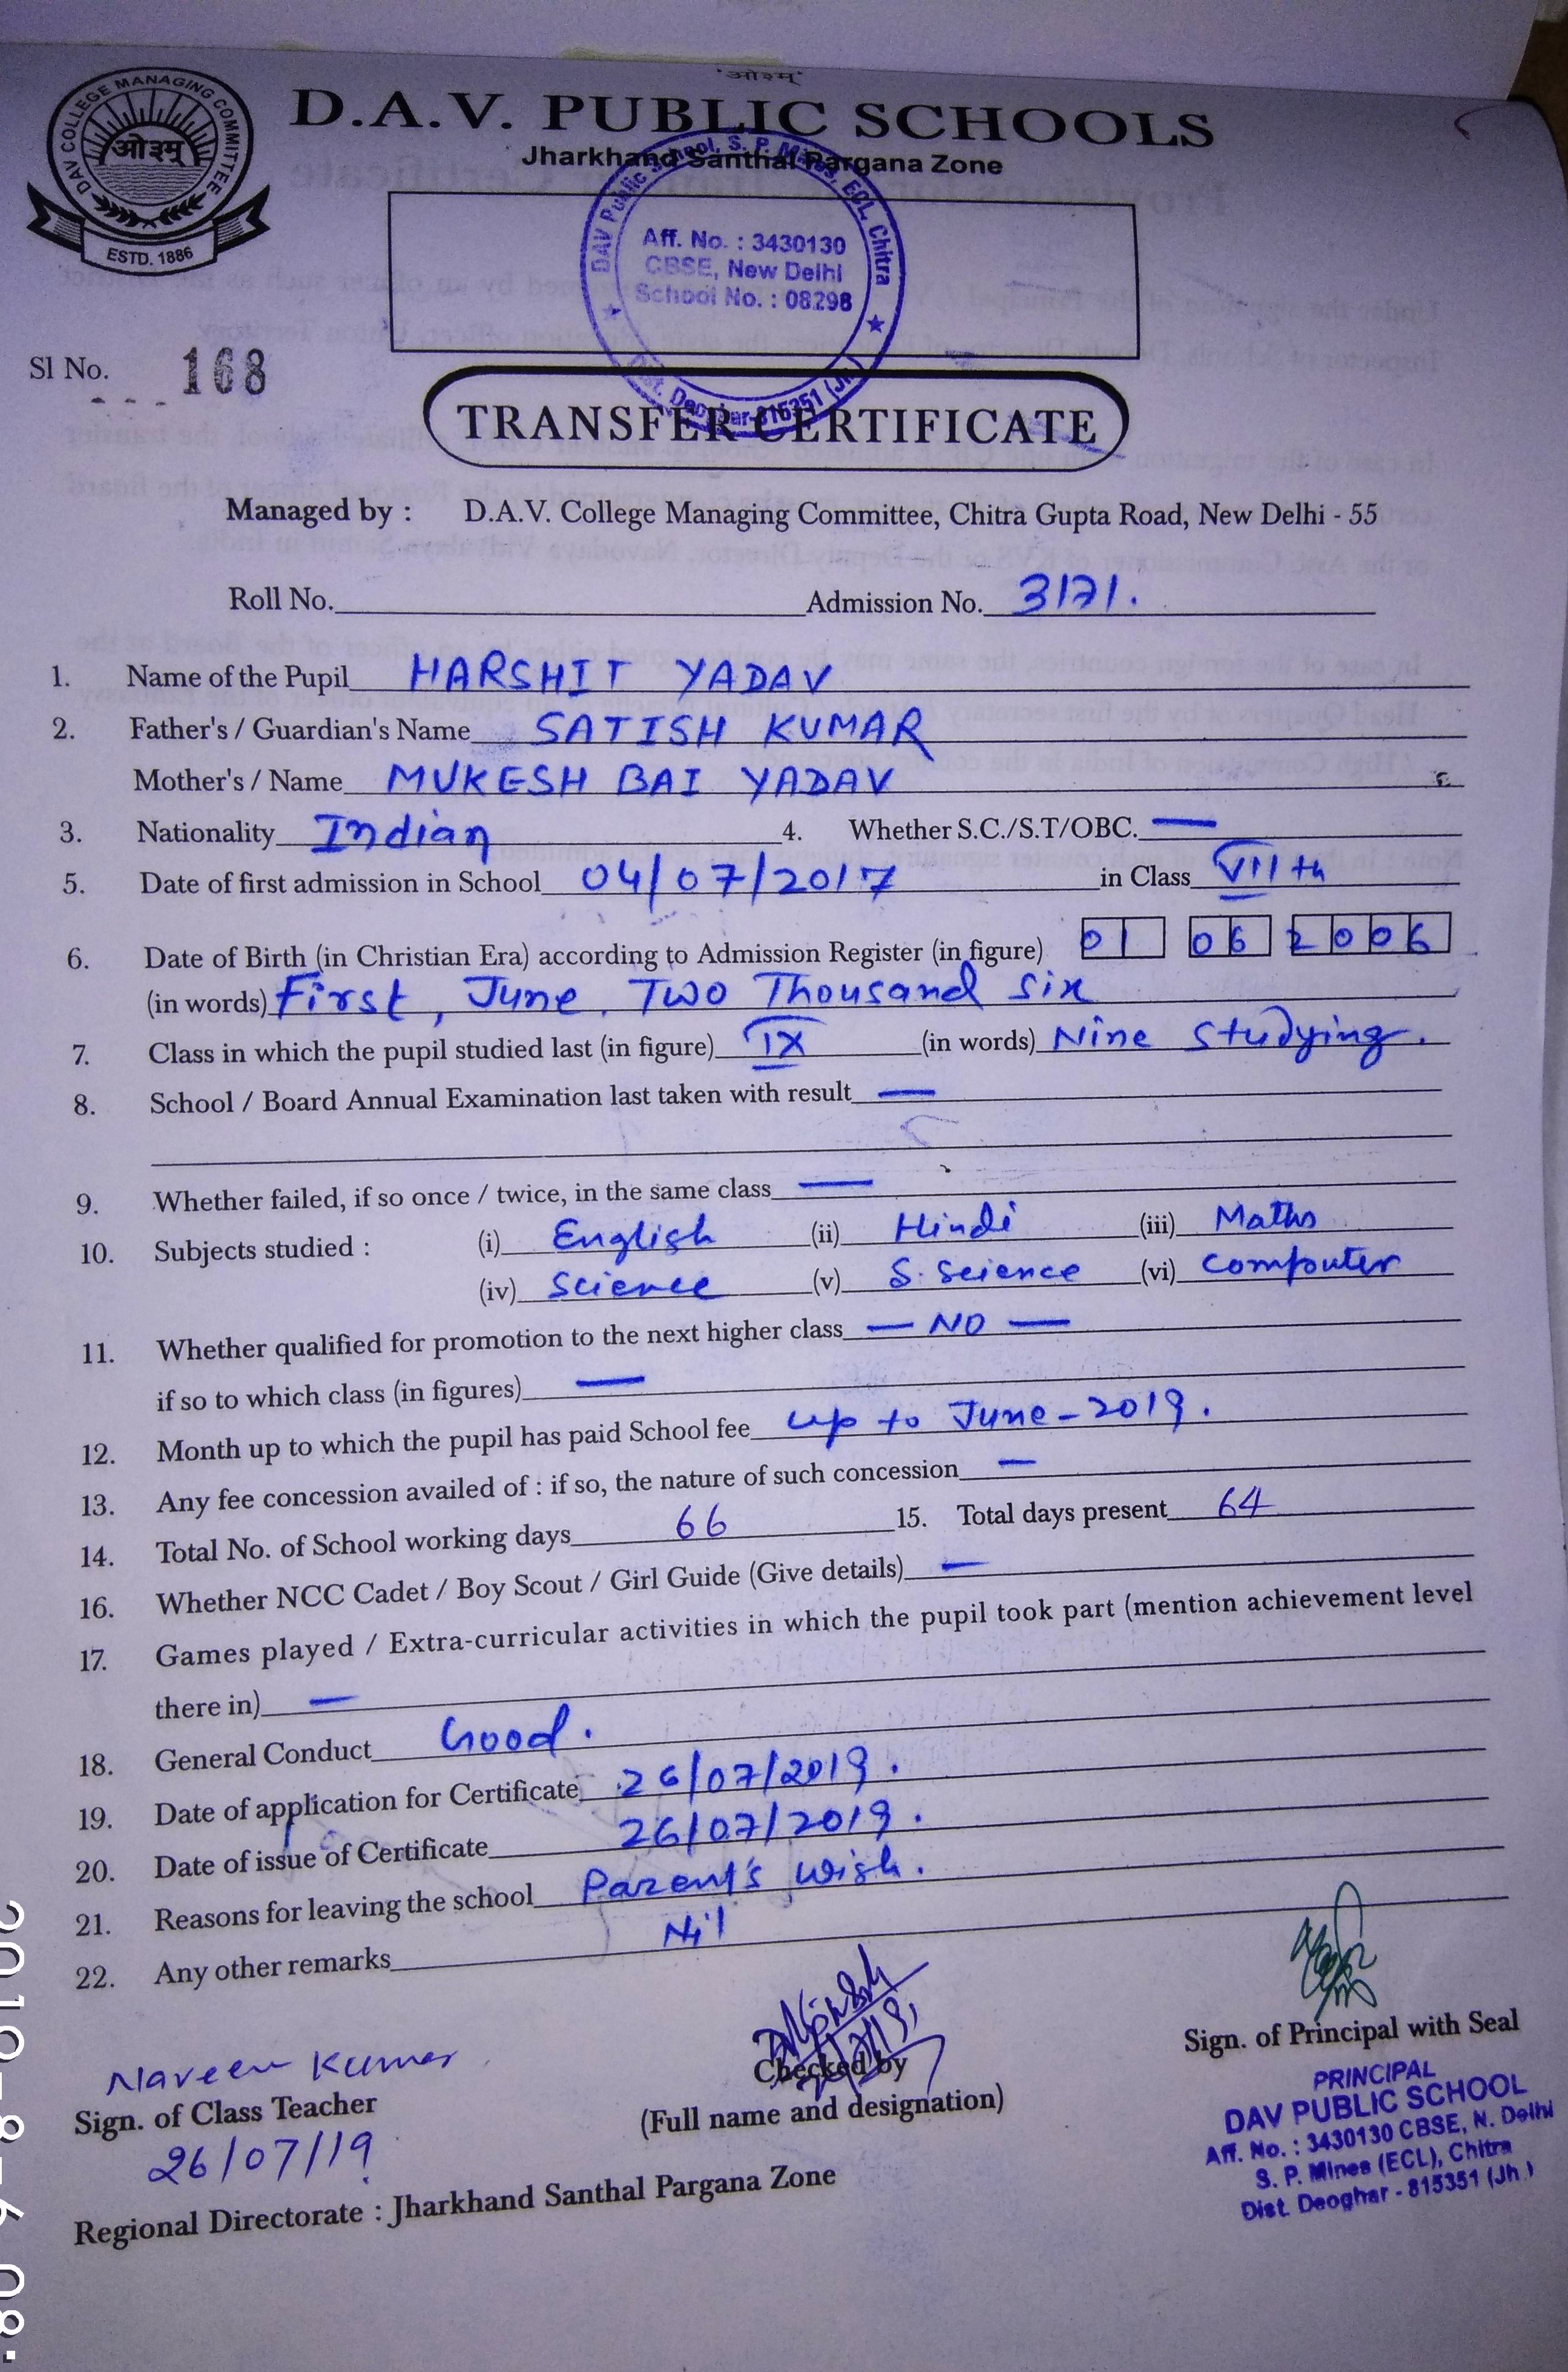 ओ३म्
DAV COLLEGE MANAGING COMMITTEE
ओ३म्
ESTD. 1886
D.A.V. PUBLIC SCHOOLS
Jharkhand Santhal Pargana Zone
DAV Public School, S. P. Mines, ECL, Chitra
Aff. No. : 3430130
CBSE, New Delhi
School No. : 08298
Dist. Deoghar-815351 (Jh.)
Sl No. 168
TRANSFER CERTIFICATE
Managed by : D.A.V. College Managing Committee, Chitra Gupta Road, New Delhi - 55
Roll No. Admission No. 3171.
1. Name of the Pupil HARSHIT YADAV
2. Father's / Guardian's Name SATISH KUMAR
Mother's / Name MUKESH BAI YADAV
3. Nationality Indian 4. Whether S.C./S.T/OBC. —
5. Date of first admission in School 04/07/2017 in Class VIIth
6. Date of Birth (in Christian Era) according to Admission Register (in figure) 01 06 2006
(in words) First, June, Two Thousand Six
7. Class in which the pupil studied last (in figure) IX (in words) Nine Studying.
8. School / Board Annual Examination last taken with result —
9. Whether failed, if so once / twice, in the same class —
10. Subjects studied : (i) English (ii) Hindi (iii) Maths
(iv) Science (v) S. Science (vi) Computer
11. Whether qualified for promotion to the next higher class — NO —
if so to which class (in figures) —
12. Month up to which the pupil has paid School fee up to June-2019.
13. Any fee concession availed of : if so, the nature of such concession —
14. Total No. of School working days 66 15. Total days present 64
16. Whether NCC Cadet / Boy Scout / Girl Guide (Give details) —
17. Games played / Extra-curricular activities in which the pupil took part (mention achievement level
there in) —
18. General Conduct Good.
19. Date of application for Certificate 26/07/2019.
20. Date of issue of Certificate 26/07/2019.
21. Reasons for leaving the school Parent's wish.
22. Any other remarks Nil
Naveen Kumar
Sign. of Class Teacher
26/07/19
Checked by
(Full name and designation)
Sign. of Principal with Seal
PRINCIPAL
DAV PUBLIC SCHOOL
Aff. No. : 3430130 CBSE, N. Delhi
S. P. Mines (ECL), Chitra
Dist. Deoghar - 815351 (Jh.)
Regional Directorate : Jharkhand Santhal Pargana Zone
2019-8-6 08: